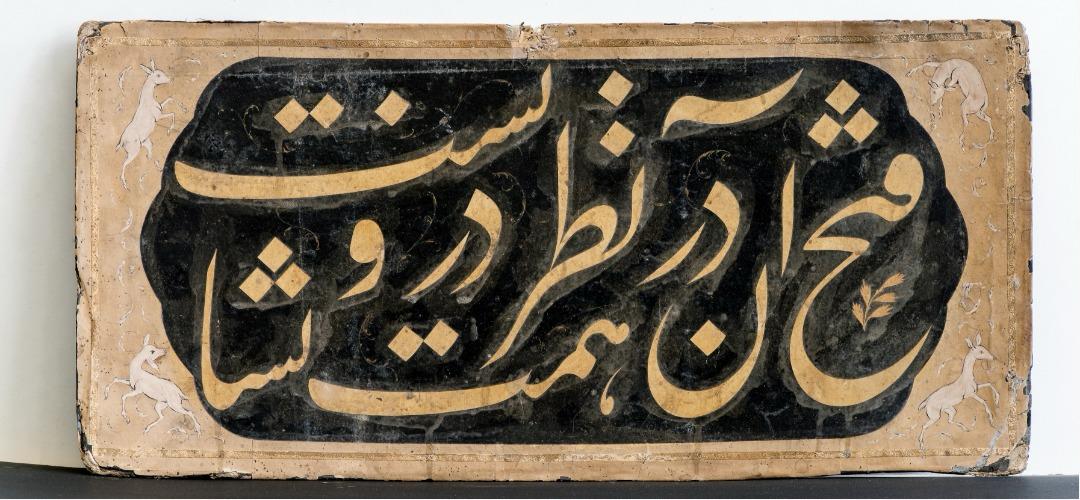 فتح آن در نظر همت درویشانست